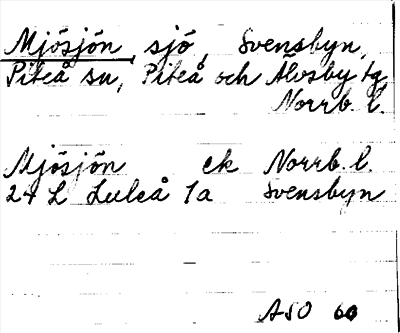 Mjösjön, sjö, Svensbyn,
Piteå sn, Piteå och Älvsby tg
Norrb. l.
Mjösjön ek Norrb. l.
24 L Luleå 1a Svensbyn
ASO 60